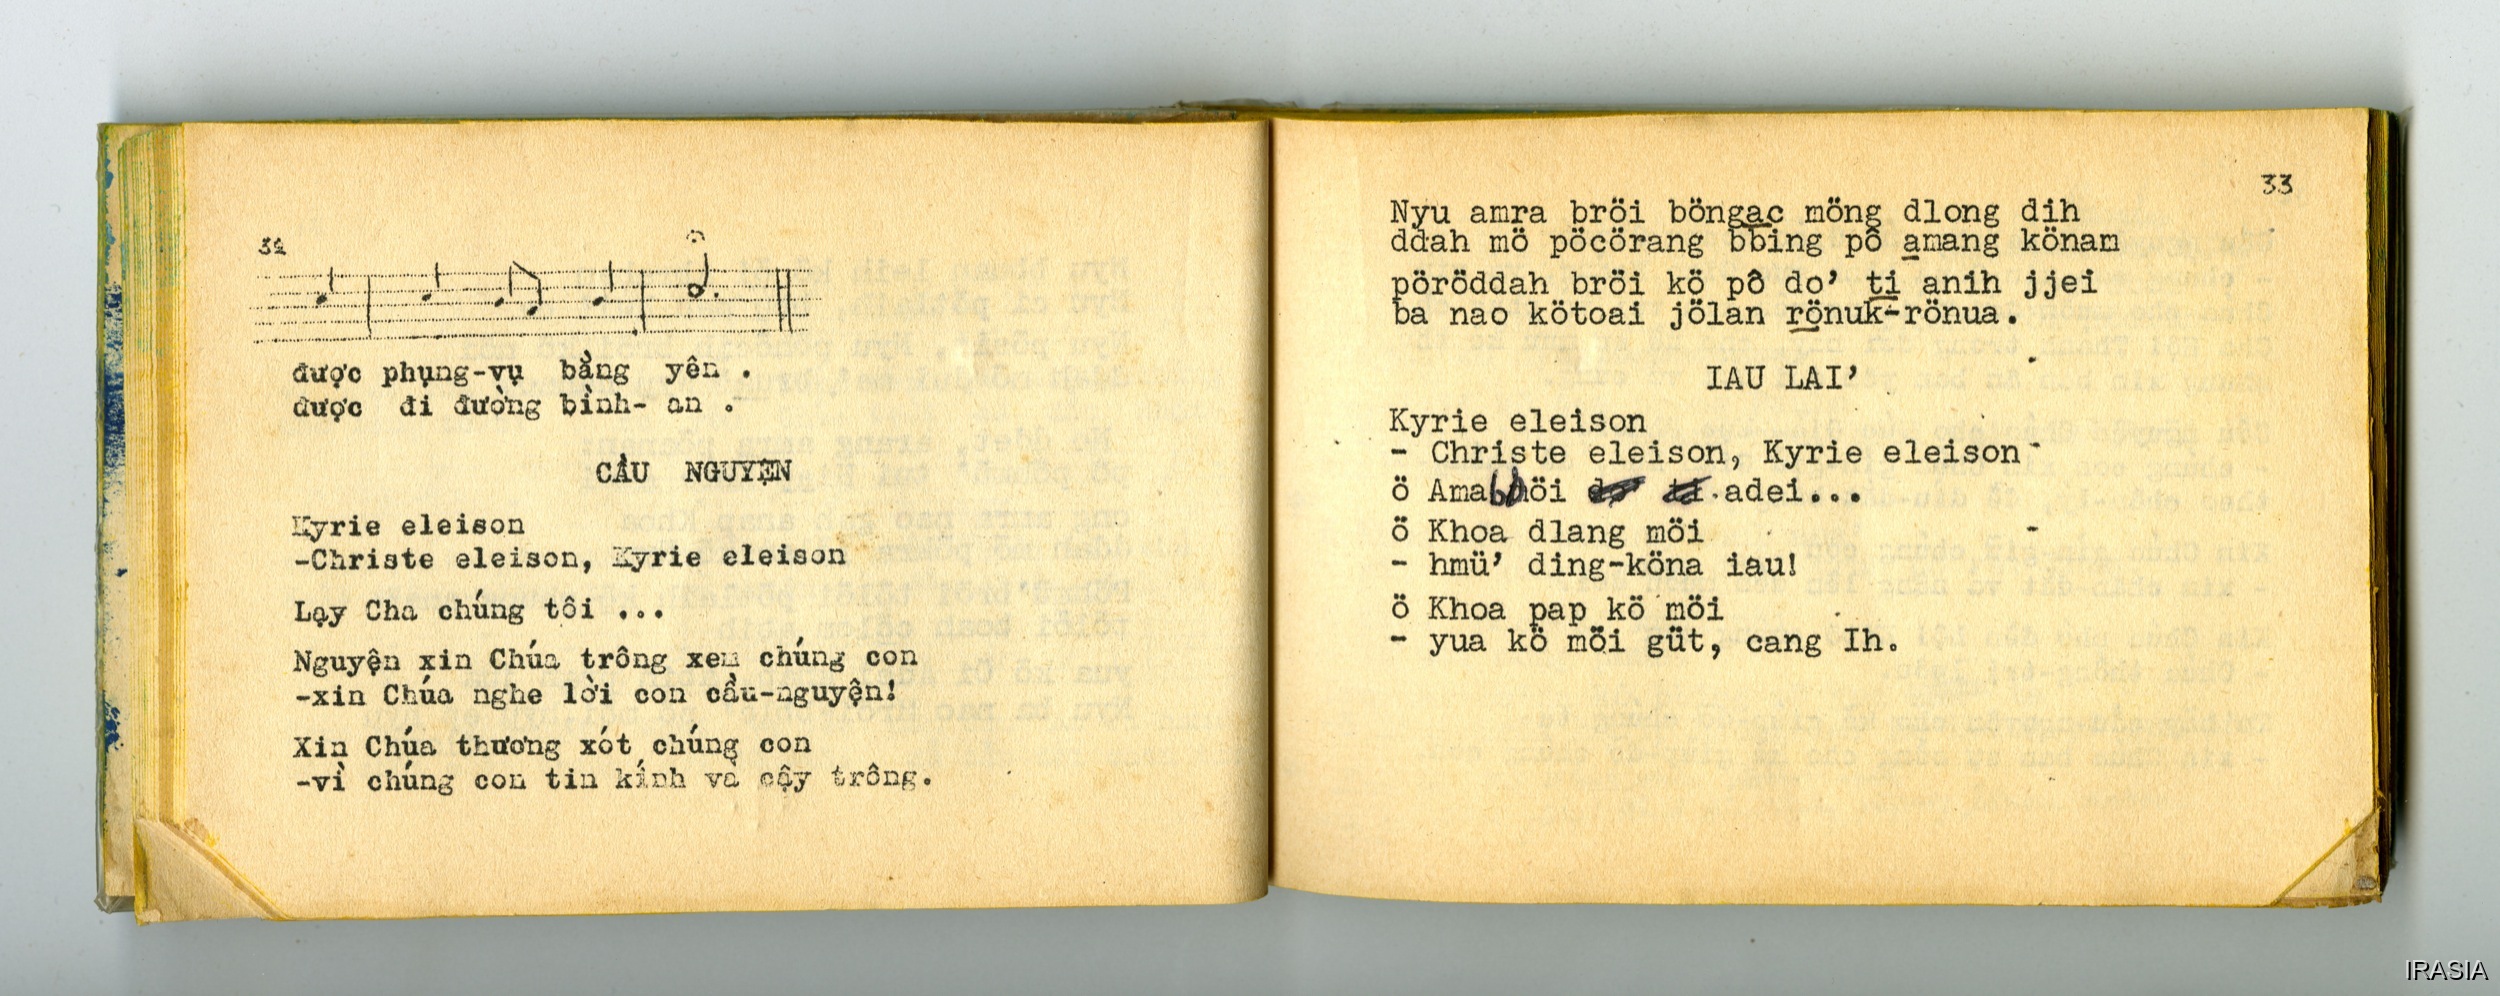 34
được phụng-vụ bằng yên .
được đi đường bình- an .
CẦU NGUYỆN
Kyrie eleison
-Christe eleison, Kyrie eleison
Lạy Cha chúng tôi ...
Nguyện xin Chúa trông xem chúng con
-xin Chúa nghe lời con cầu-nguyện!
Xin Chúa thương xót chúng con
-vì chúng con tin kính và cậy trông.
33
Nyu amra bröi böngac möng dlong dih
ddah mö pöcörang bbing pô amang könam
pöröddah bröi kö pô do’ ti anih jjei
ba nao kötoai jölan rönuk-rönua.
IAU LAI’
Kyrie eleison
- Christe eleison, Kyrie eleison
ö Ama böi adei...
ö Khoa dlang möi
- hmü’ ding-köna iau!
ö Khoa pap kö möi
- yua kö möi güt, cang Ih.
IRASIA